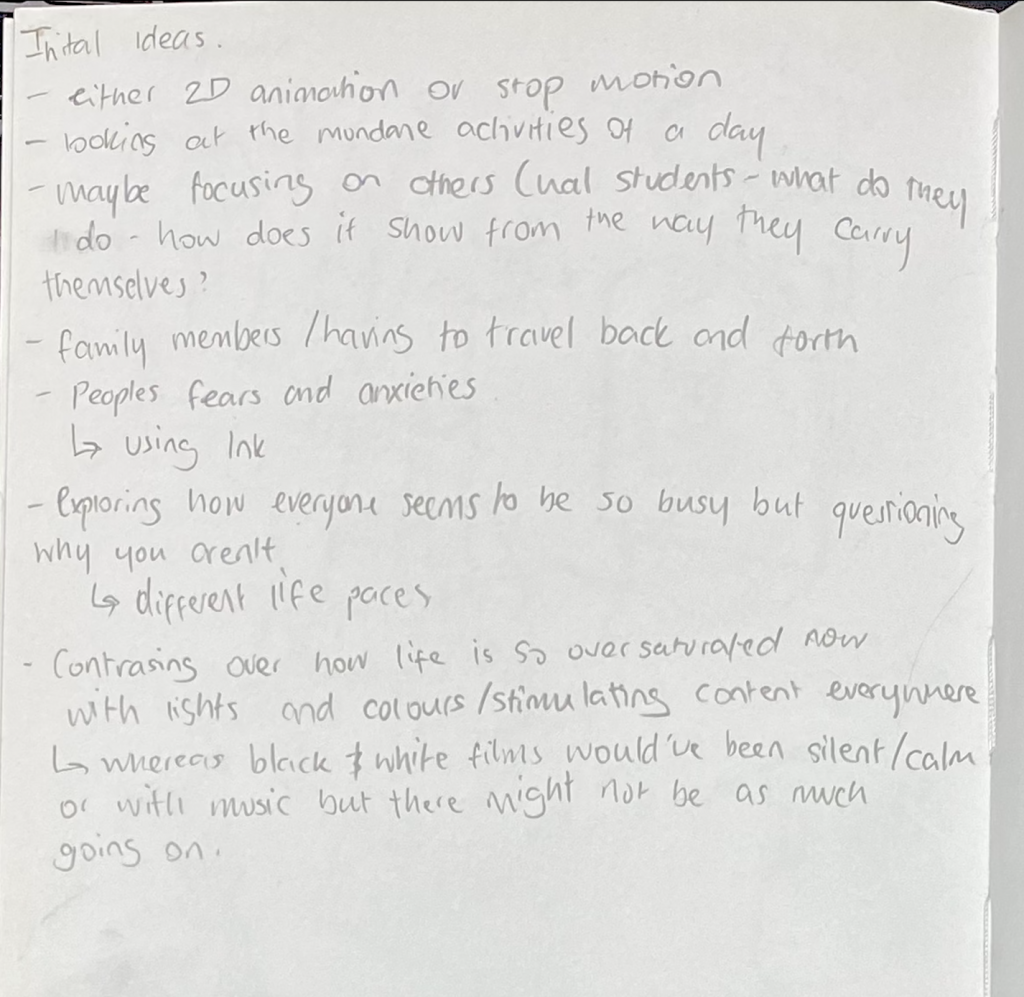 Inital ideas.
- either 2D animation or stop motion
- looking at the mundane activities of a day
- maybe focusing on others (ual students - what do they
do - how does it show from the way they carry
themselves?
- family members / having to travel back and forth
- Peoples fears and anxieties
↳ using Ink
- Exploring how everyone seems to be so busy but questioning
why you aren't
↳ different life paces
- Contrasing over how life is so oversaturated now
with lights and colours / stimulating content everywhere
↳ whereas black & white films would've been silent / calm
or with music but there might not be as much
going on.